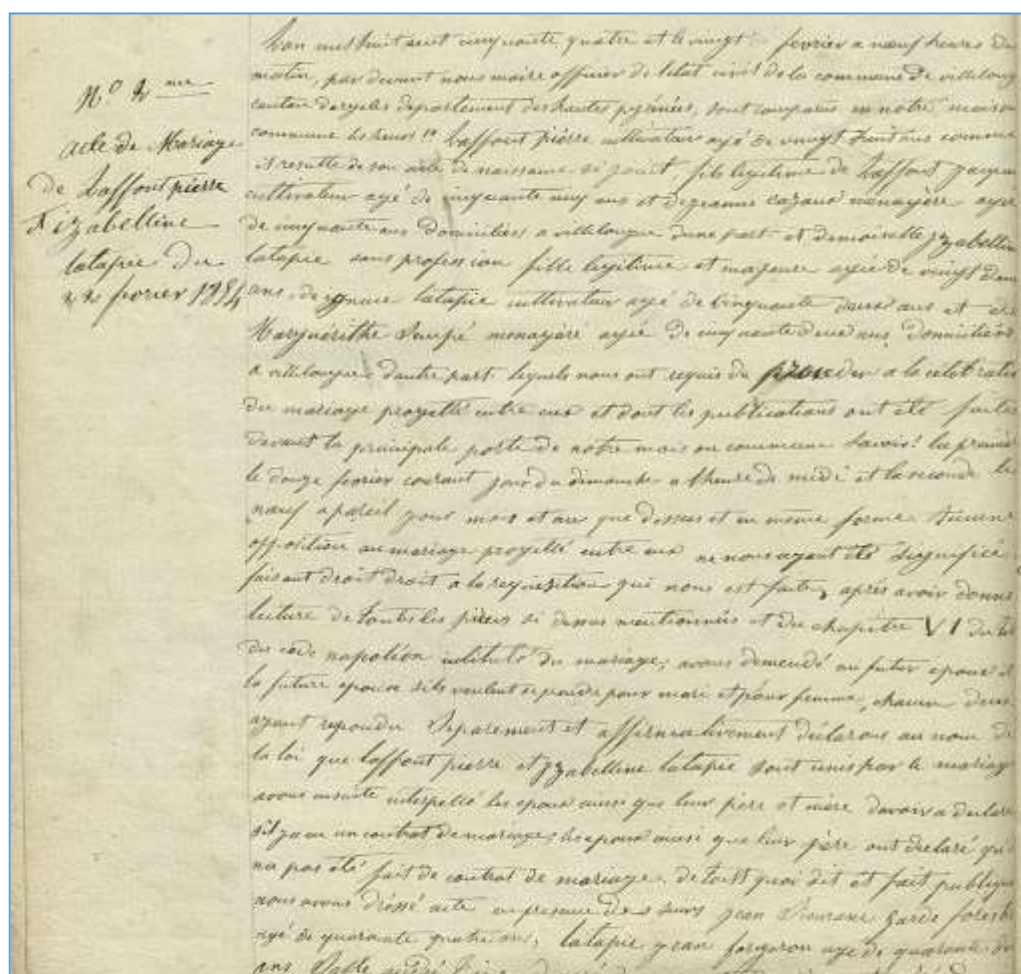 N° 2 me
acte de Mariage
de Laffont pierre
& izabelline
latapie du
22 fevrier 1854
Lan mil huit cent cinquante quatre et le vingt fevrier a neuf heures du
matin, par devant nous maire officier de letat civil de la commune de villelong
canton departement des hautes pyrénées, sont comparus en notre maison
commune les sieurs Laffont pierre cultivateur agé de vingt huit ans comme
il resulte de son acte de naissance si joint, fils legitime de Laffont jacques
cultivateur agé de cinquante cinq ans et de jeanne cazaux menagère agée
de cinquante ans domiciliés a villelongue dune part et demoiselle jzabelline
latapie sans profession fille legitime et majeure agée de vingt deux
ans de latapie cultivateur agé de cinquante deux ans et de
Marguerithe Sempé menagère agée de cinquante deux ans domiciliés
a villelongue dautre part lesquels nous ont requis de proceder a la celebration
du mariage progetté entre eux et dont les publications ont été faites
devant la principale porte de notre maison commune Savoir: la premier
le douze fevrier courant jour du dimanche a lheure de midi et la seconde le
neuf a pareil jour mois et an que dessus et en meme forme. Aucune
opposition au mariage progetté entre eux ne nous ayant été Signifiée
faisant droit droit a la requisition qui nous est faite, après avoir donné
lecture de toutes les pièces si dessus mentionnées et du chapitre VI du
du code napoléon intitulé du mariage; avons demendé au futur epoux et
la future epouse sils veulent se prendre pour mari et pour femme, chacun deux
ayant repondu Separement et affirmativement déclarons au nom de
la loi que laffont pierre et jzabelline latapie sont unis par le mariage
avons ensuite interpellé les epoux ainsi que leur père et mère davoir a declarer
sil y a eu un contrat de mariage; les epoux ainsi que leur père ont declaré qu
na pas été fait de contrat de mariage. de tout quoi dit et fait publique
nous avons dressé acte en presence des sieurs jean garde forestie
agé de quarante quatre ans, latapie jean forgeron agé de quarante
ans